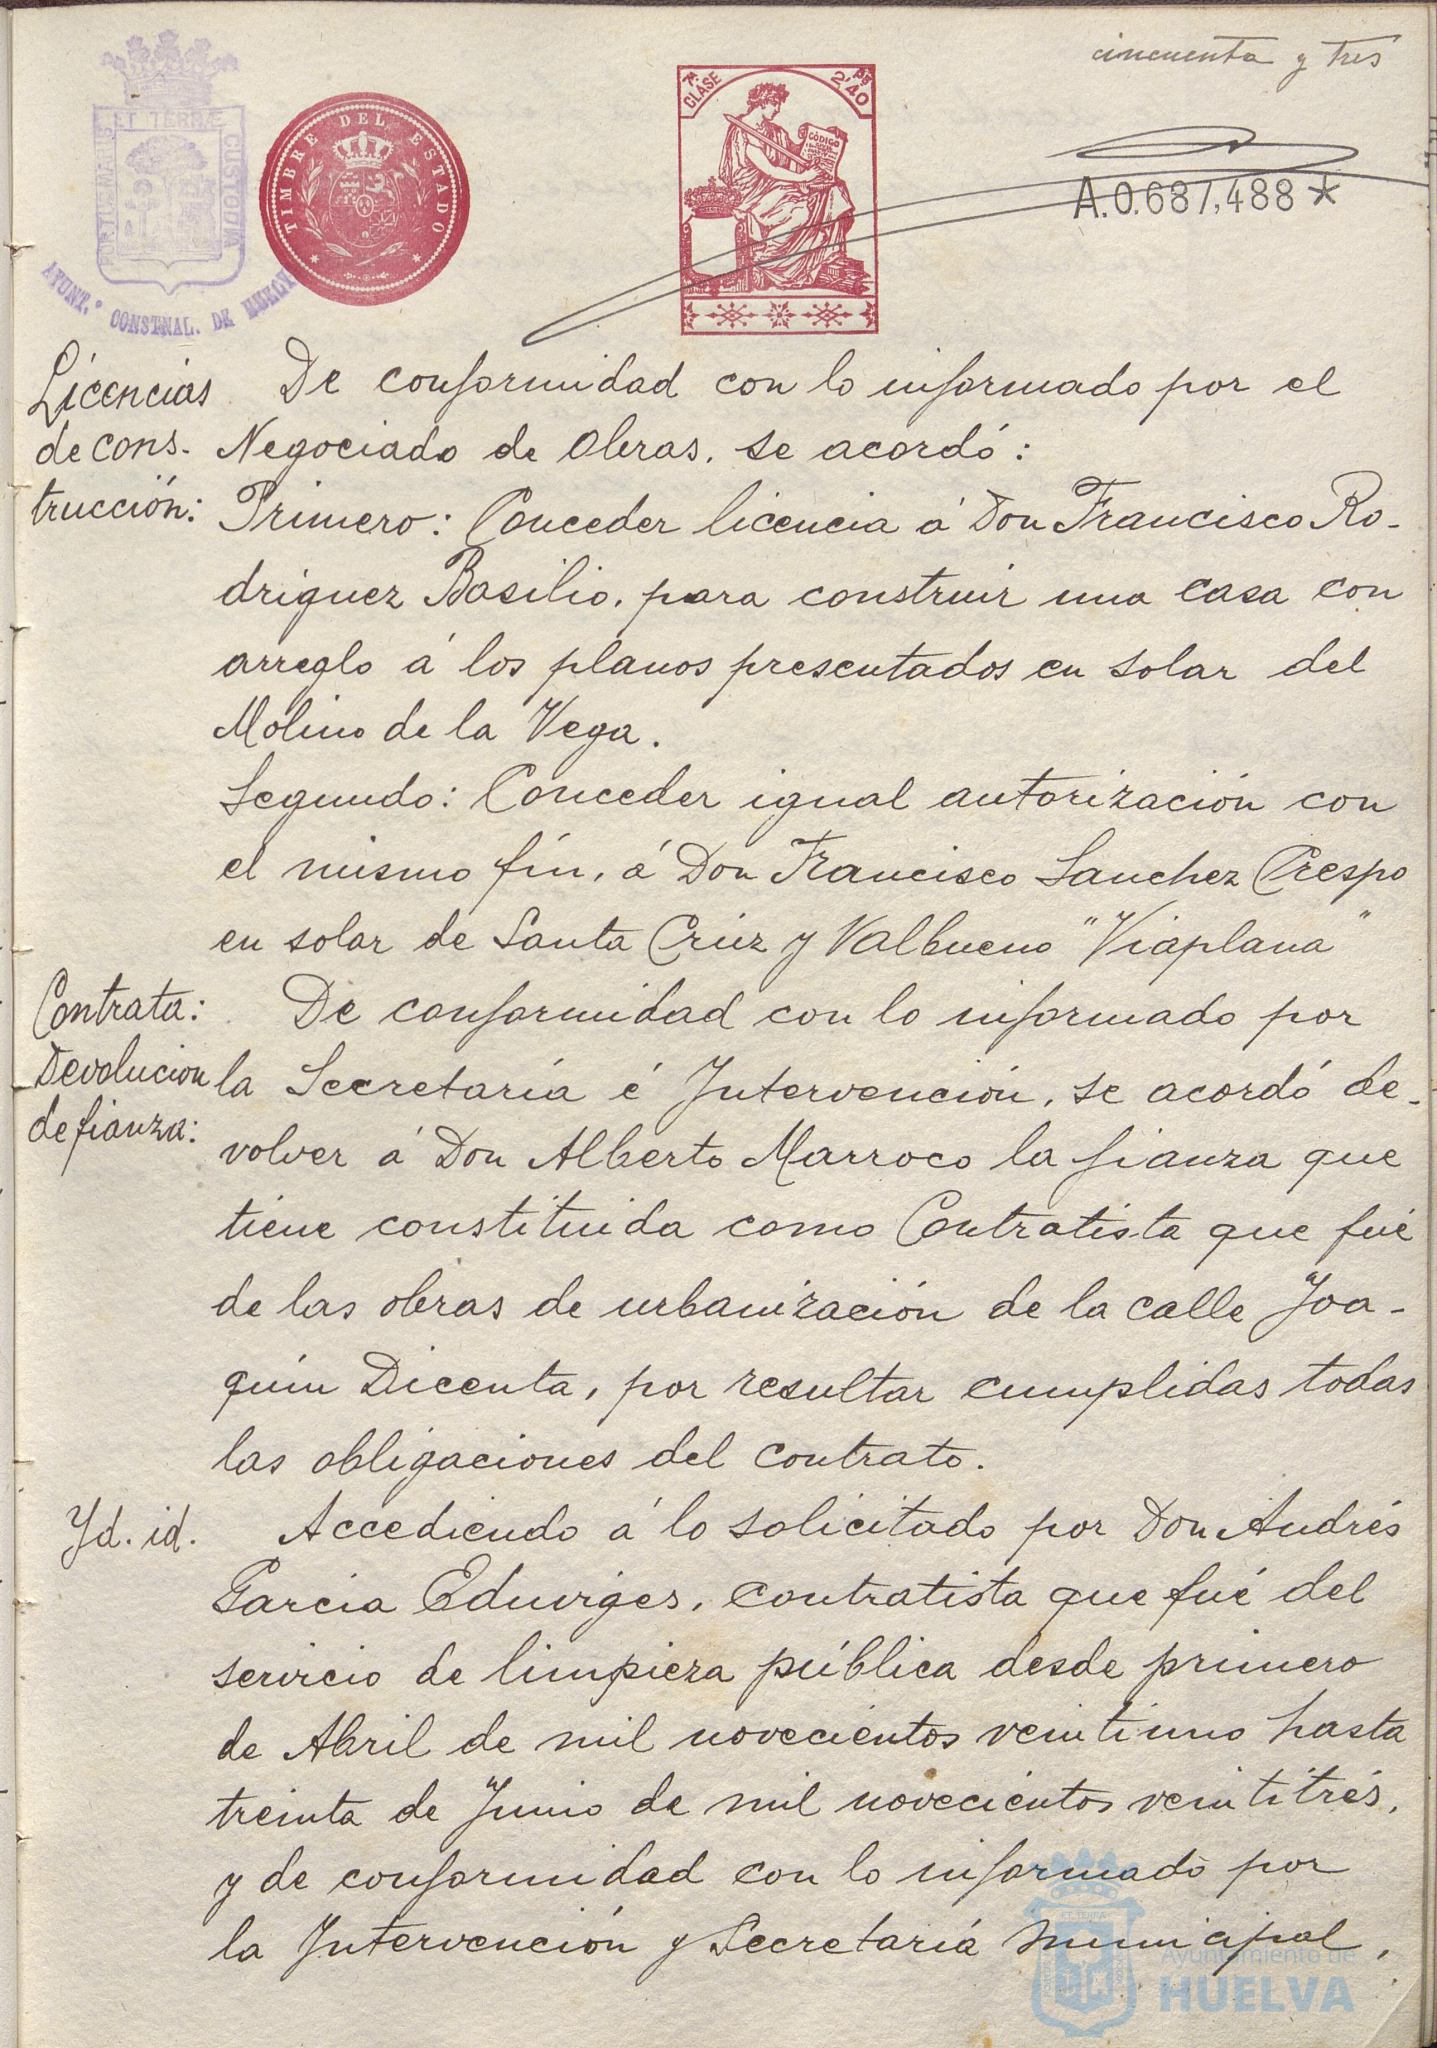 cincuenta y tres
ET TERRÆ
PORTUS MARIS
CUSTODIA
AYUNT.º CONSTNAL. DE HUELVA
TIMBRE DEL ESTADO
7ª CLASE
2'40 PS
CÓDIGO
A.0.687,488*
Licencias
de cons-
trucción:
De conformidad con lo informado por el
Negociado de Obras, se acordó:
Primero: Conceder licencia á Don Francisco Ro-
driguez Basilio, para construir una casa con
arreglo á los planos presentados en solar del
Molino de la Vega.
Segundo: Conceder igual autorización con
el mismo fín, á Don Francisco Sanchez Crespo
en solar de Santa Cruz y Valbueno "Viaplana"
Contrata:
Devolucion
de fianza:
De conformidad con lo informado por
la Secretaría é Intervención, se acordó de-
volver á Don Alberto Marroco la fianza que
tiene constituida como Contratista que fué
de las obras de urbanización de la calle Joa-
quín Dicenta, por resultar cumplidas todas
las obligaciones del contrato.
Yd. id.
Accediendo á lo solicitado por Don Andrés
Garcia Eduvigés, contratista que fué del
servicio de limpieza pública desde primero
de Abril de mil novecientos veintiuno hasta
treinta de Junio de mil novecientos veintitrés,
y de conformidad con lo informado por
la Intervención y Secretaría municipal,
Ayuntamiento de
HUELVA